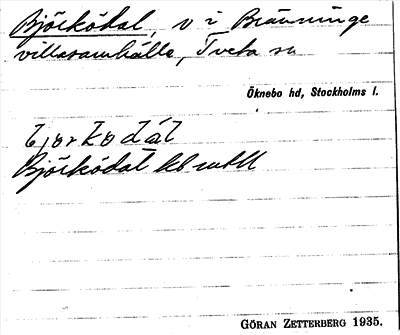 Björködal, v i Bränninge
villasamhälle, Tveta sn
Öknebo hd, Stockholms l.
Björködal
GÖRAN ZETTERBERG 1935.